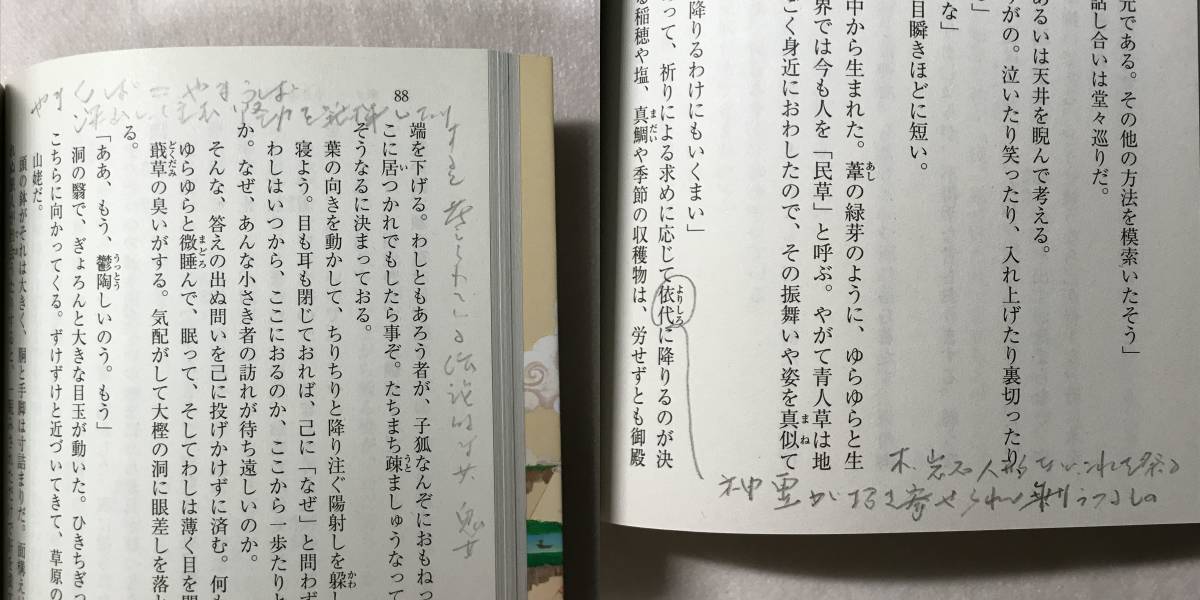 88
端を下げる。わしともあろう者が、子狐なんぞにおもねっ
こに居つかれでもしたら事ぞ。たちまち疎ましゅうなって
そうなるに決まっておる。
葉の向きを動かして、ちりちりと降り注ぐ陽射しを躱し
寝よう。目も耳も閉じておれば、己に「なぜ」と問わず
わしはいつから、ここにおるのか、ここから一歩たりと
か。なぜ、あんな小さき者の訪れが待ち遠しいのか。
そんな、答えの出ぬ問いを己に投げかけずに済む。何も
ゆらゆらと微睡んで、眠って、そしてわしは薄く目を開
蕺草の臭いがする。気配がして大樫の洞に眼差しを落と
る。
「ああ、もう、鬱陶しいのう。もう」
洞の翳で、ぎょろんと大きな目玉が動いた。ひきちぎっ
こちらに向かってくる。ずけずけと近づいてきて、草原の
山姥だ。
頭の鉢がそれは大きく、胴と手脚は寸詰まりだ。面構え
元である。その他の方法を模索いたそう」
話し合いは堂々巡りだ。
あるいは天井を睨んで考える。
すがの。泣いたり笑ったり、入れ上げたり裏切ったり
」
な」
目瞬きほどに短い。
中から生まれた。葦の緑芽のように、ゆらゆらと生
界では今も人を「民草」と呼ぶ。やがて青人草は地
ごく身近におわしたので、その振舞いや姿を真似て
降りるわけにもいくまい」
って、祈りによる求めに応じて依代に降りるのが決
る稲穂や塩、真鯛や季節の収穫物は、労せずとも御殿
木 岩石 人形
神霊が招き寄せられ